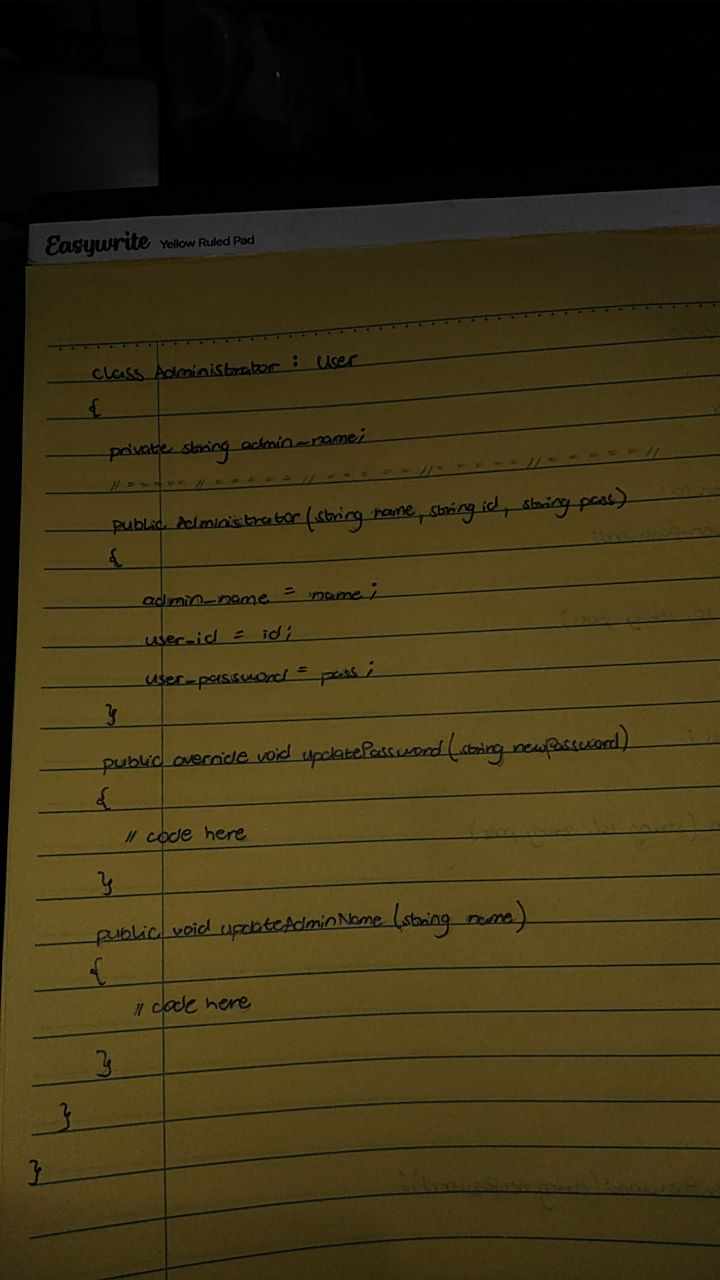 Easywrite Yellow Ruled Pad
class Administrator : User
{
private string admin_name;
//=====//=====//=====//=====//=====//
public Administrator(string name, string id, string pass)
{
admin_name = name;
user_id = id;
user_password = pass;
}
public override void updatePassword(string newPassword)
{
// code here
}
public void updateAdminName(string name)
{
// code here
}
}
}